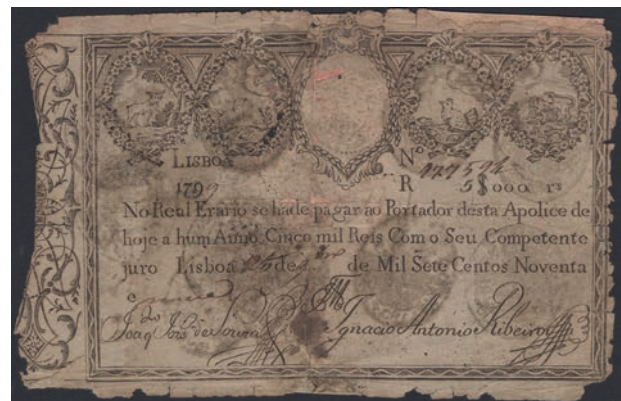 LISBOA Nº
1799 R 5$000 rs
No Real Erario se hade pagar ao Portador desta Apolice de
hoje a hum Anno Cinco mil Reis Com o Seu Competente
juro Lisboa de de Mil Sete Centos Noventa
e
Joaq Joze de Souza Ignacio Antonio Ribeiro